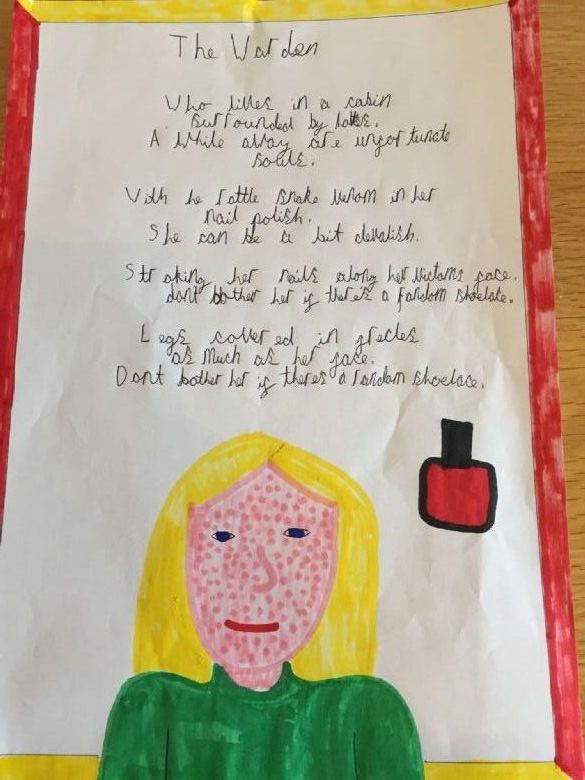 The Warden
Who lives in a cabin
surrounded by holes.
A while away are unfortunate
souls.
With he rattle snake venom in her
nail polish.
She can be a bit devalish.
Straking her nails along her victams face.
dont bother her if there's a random shoelace.
Legs covered in frecles
as much as her face.
Dont bother her if theres a random shoelace.